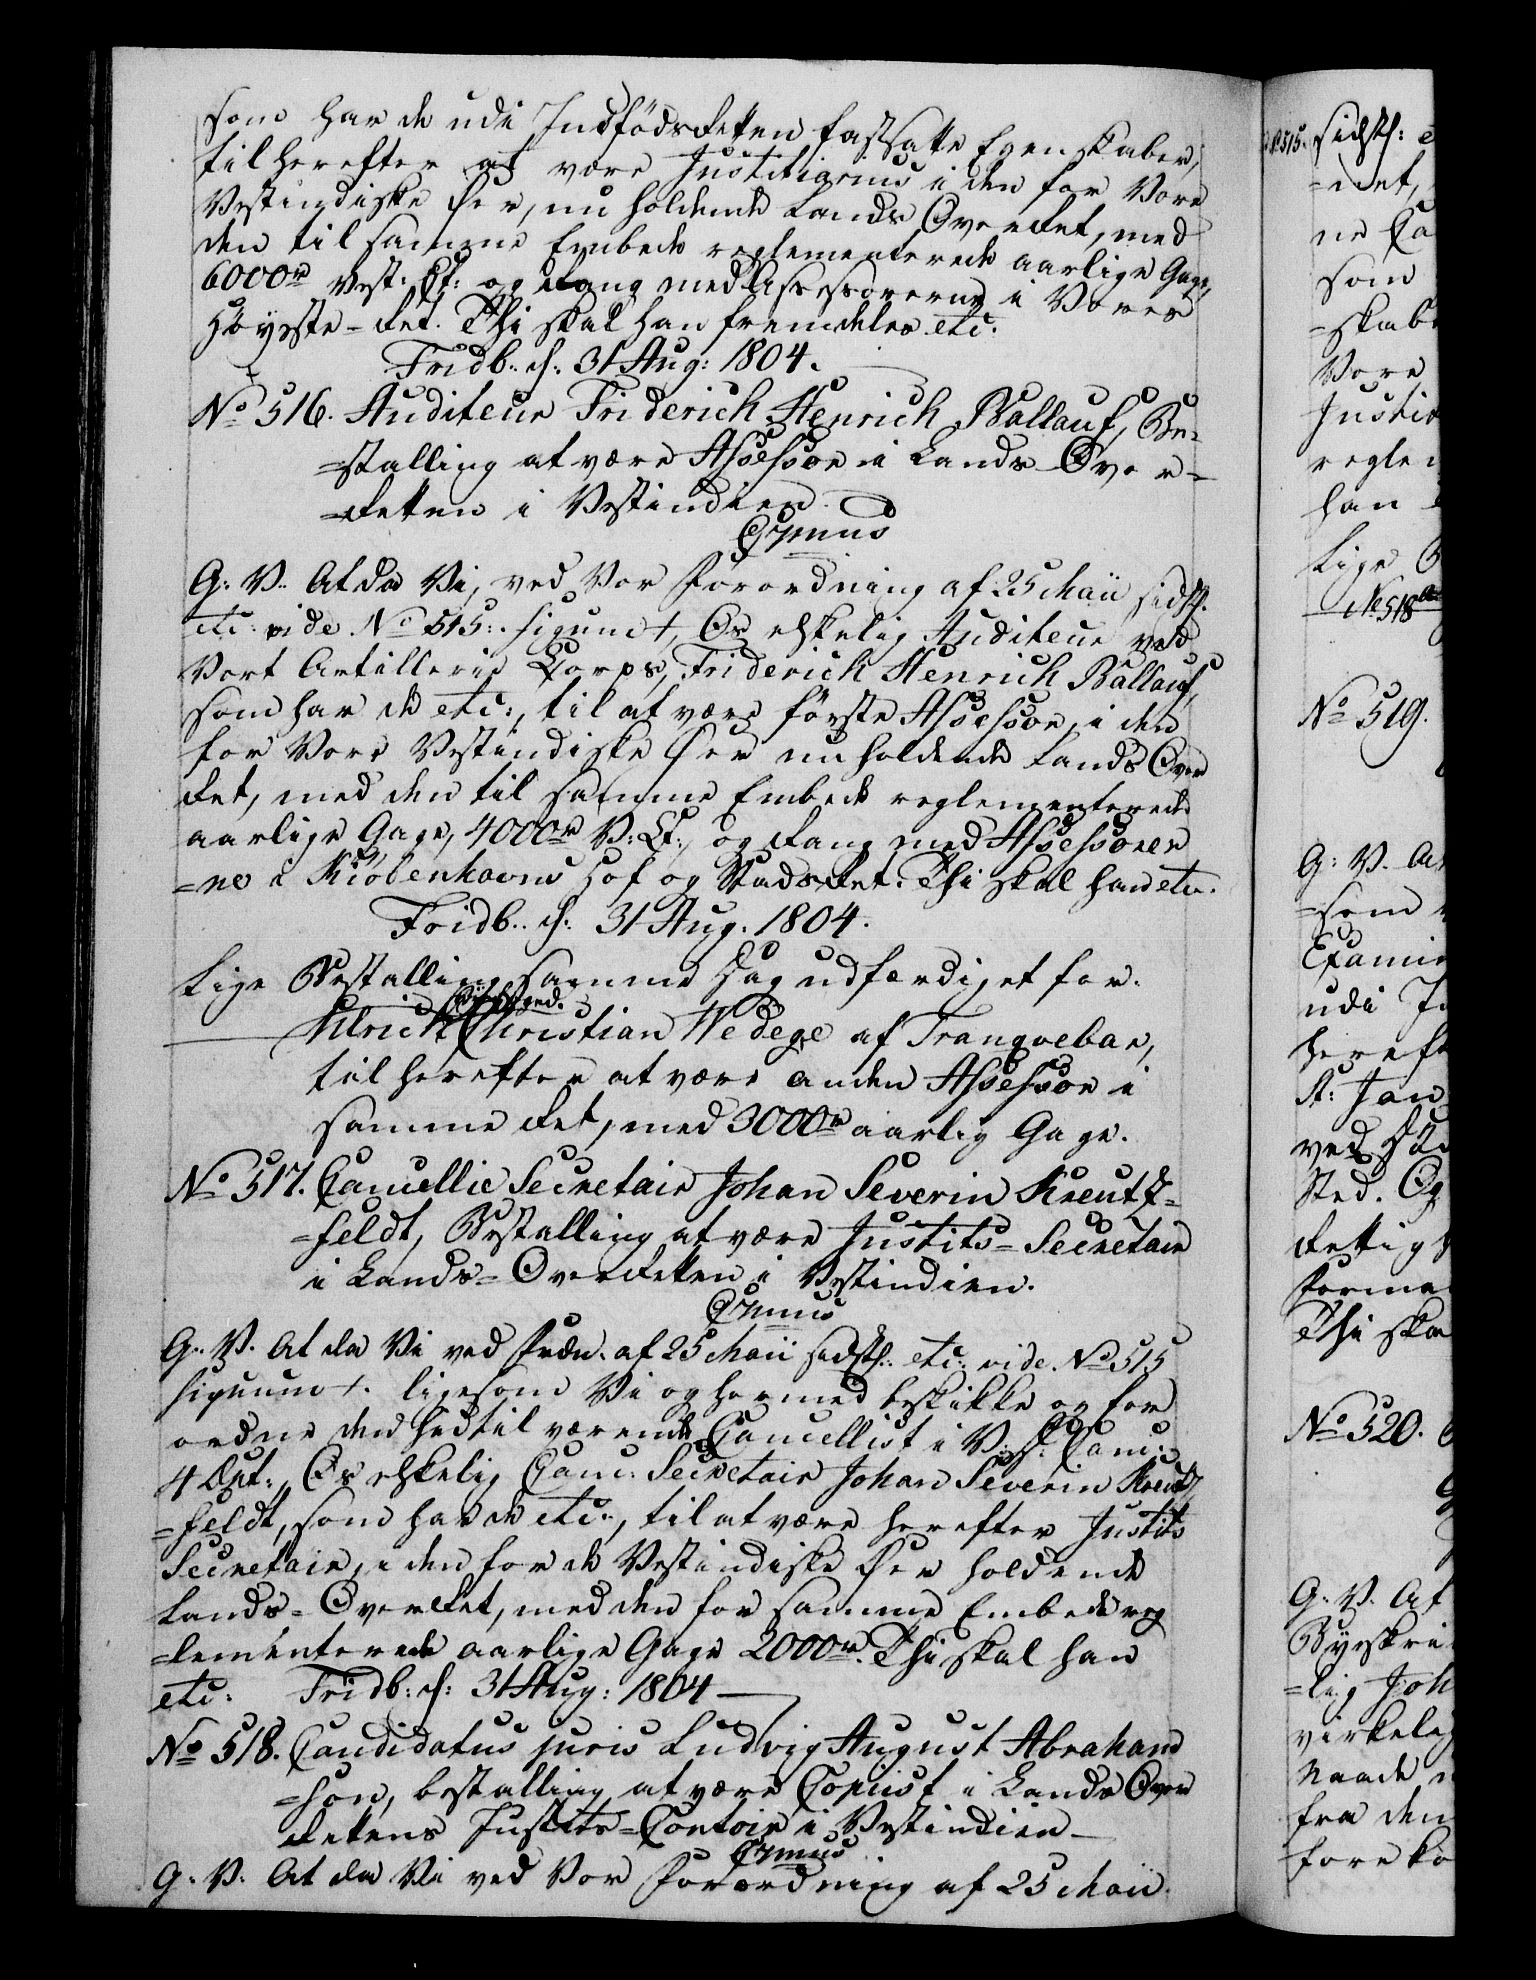 som har de udi Indfødsretten fastsatte Egenskaber,
til herefter at være Justitiarius i den for Vore
Vestindiske Øer, nu holdende Lands Overret, med
den til samme Embede reglementerede aarlige Gage,
6000r Vest: Ct: og Rang med Assessorerne i Vores
Høyeste-Ret. Thi skal han fremdeles etc:
Fridb: d: 31 Aug: 1804.
No 516. Auditeur Friderich Henrich Ballauf, Be-
=stalling at være Assessor i Lands Over-
=Retten i Vestindien.
C7mus
G: V: At da Vi, ved Vor Forordning af 25 Maii sidstl:
etc: vide No 515: signum †, Os elskelig Auditeur ved
Vort Artillerie Corps, Friderich Henrich Ballauf,
som har de etc:, til at være første Assessor, i den
for Vore Vestindiske Øer nu holdende Lands Over
Ret, med den til samme Embede reglementerede
aarlige Gage, 4000r V: Ct:, og Rang med Assessorer
=ne i Kiøbenhavns Hof og Stads Ret: Thi skal han etc.
Fridb: d: 31 Aug. 1804.
Lige Bestalling samme Dag udfærdiget for.
Ulrich Christian Wedege af Tranqvebar,
til herefter at være anden Assessor i
samme Ret, med 3000r aarlig Gage.
No 517. Cancellie Secretair Johan Severin Kreutz-
=feldt, Bestalling at være Justits=Secretair
i Lands=Overretten i Vestindien.
C7mus
G: V. At da Vi ved Frdn. af 25 Maii sidstl: etc: vide No 515
signum †. ligesom Vi og hermed beskikke og for
ordne den hidtil værende Cancellist i V: D: Canc:
4 Dpt:, Os elskelig Canc: Secretair Johan Severin Kreutz
=feldt, som har de etc:, til at være herefter Justits
Secretair, i den for de Vestindiske Øer holdende
Lands=Overret, med den for samme Embede reg
=lementerede aarlige Gage 2000r. Thi skal han
etc: Fridb: d: 31 Aug: 1804
No 518. Candidatus juris Ludvig August Abraham
=son, bestalling at være Copiist i Lands Over
Rettens Justits=Contoir i Vestindien
C7mus
G: V: At da Vi ved Vor Forordning af 25 Maii
515. sidstl:
=det,
som
=skabe
Vore
regle
han
Lige
No 518
No 519.
G: V. At
=som
udi
herefte
ved
Sted. Og
Thi ska
No 520.
G: V. At
Byeskri
=lig Joh
virkelig
Naade
fra den